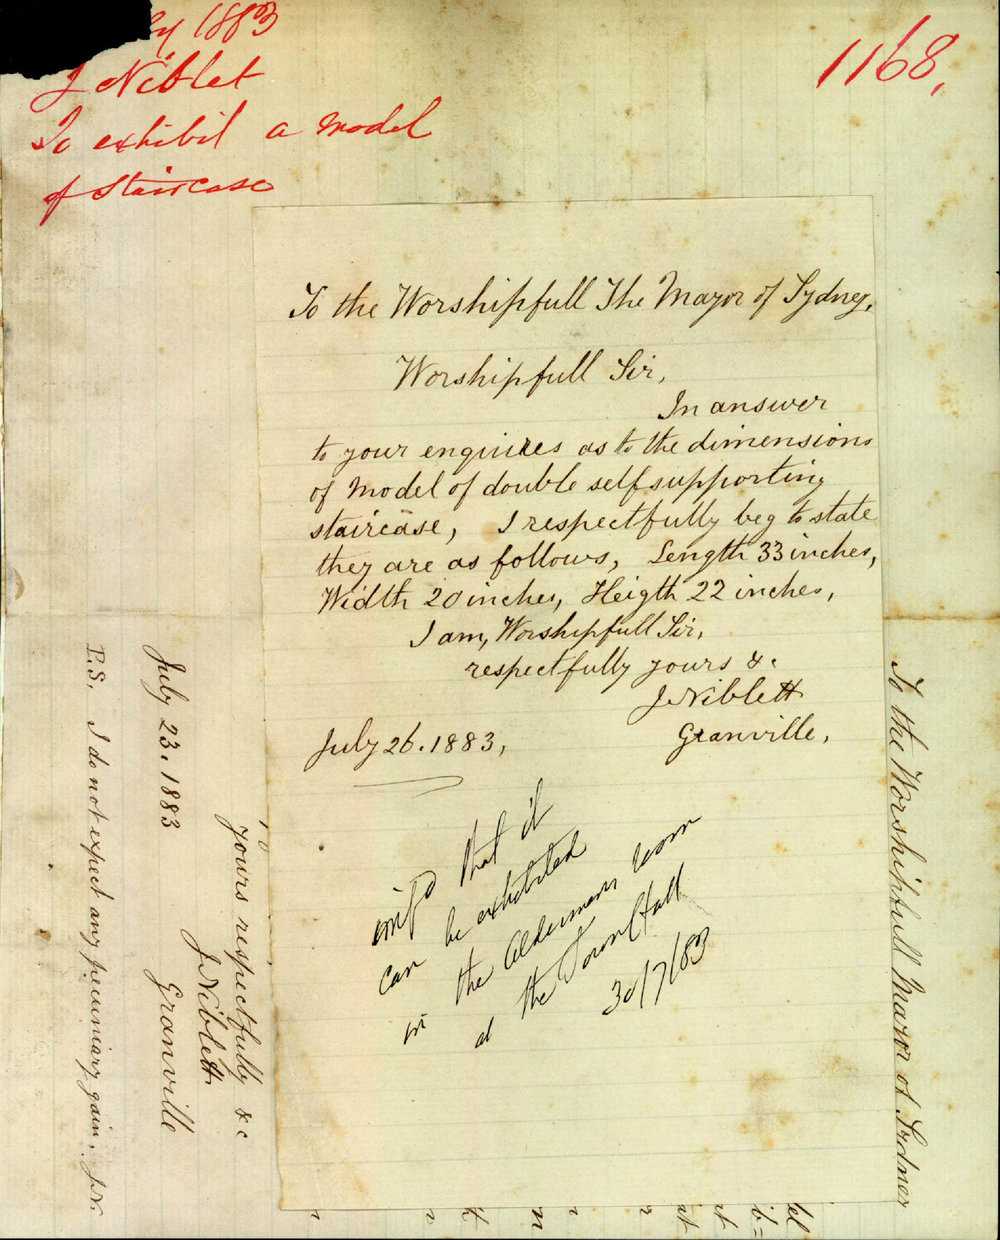 ly 1883
J Niblet
To exhibit a Model
of Staircase
1168,
To the Worshipfull The Mayor of Sydney,
Worshipfull Sir,
In answer
to your enquiries as to the dimensions
of Model of double self supporting
staircase, I respectfully beg to state
they are as follows, Length 33 inches,
Width 20 inches, Heigth 22 inches,
I am, Worshipfull Sir,
respectfully yours &.
J. Niblett
Granville,
July 26. 1883,
infd that it
can be exhibited
in the Aldermens room
at the Town Hall
30/7/83
To the Worshipfull Mayor of Sydney
Yours respectfully &c
J Niblett
Granville
July 23. 1883
P.S. I do not expect any pecuniary gain, J.N.